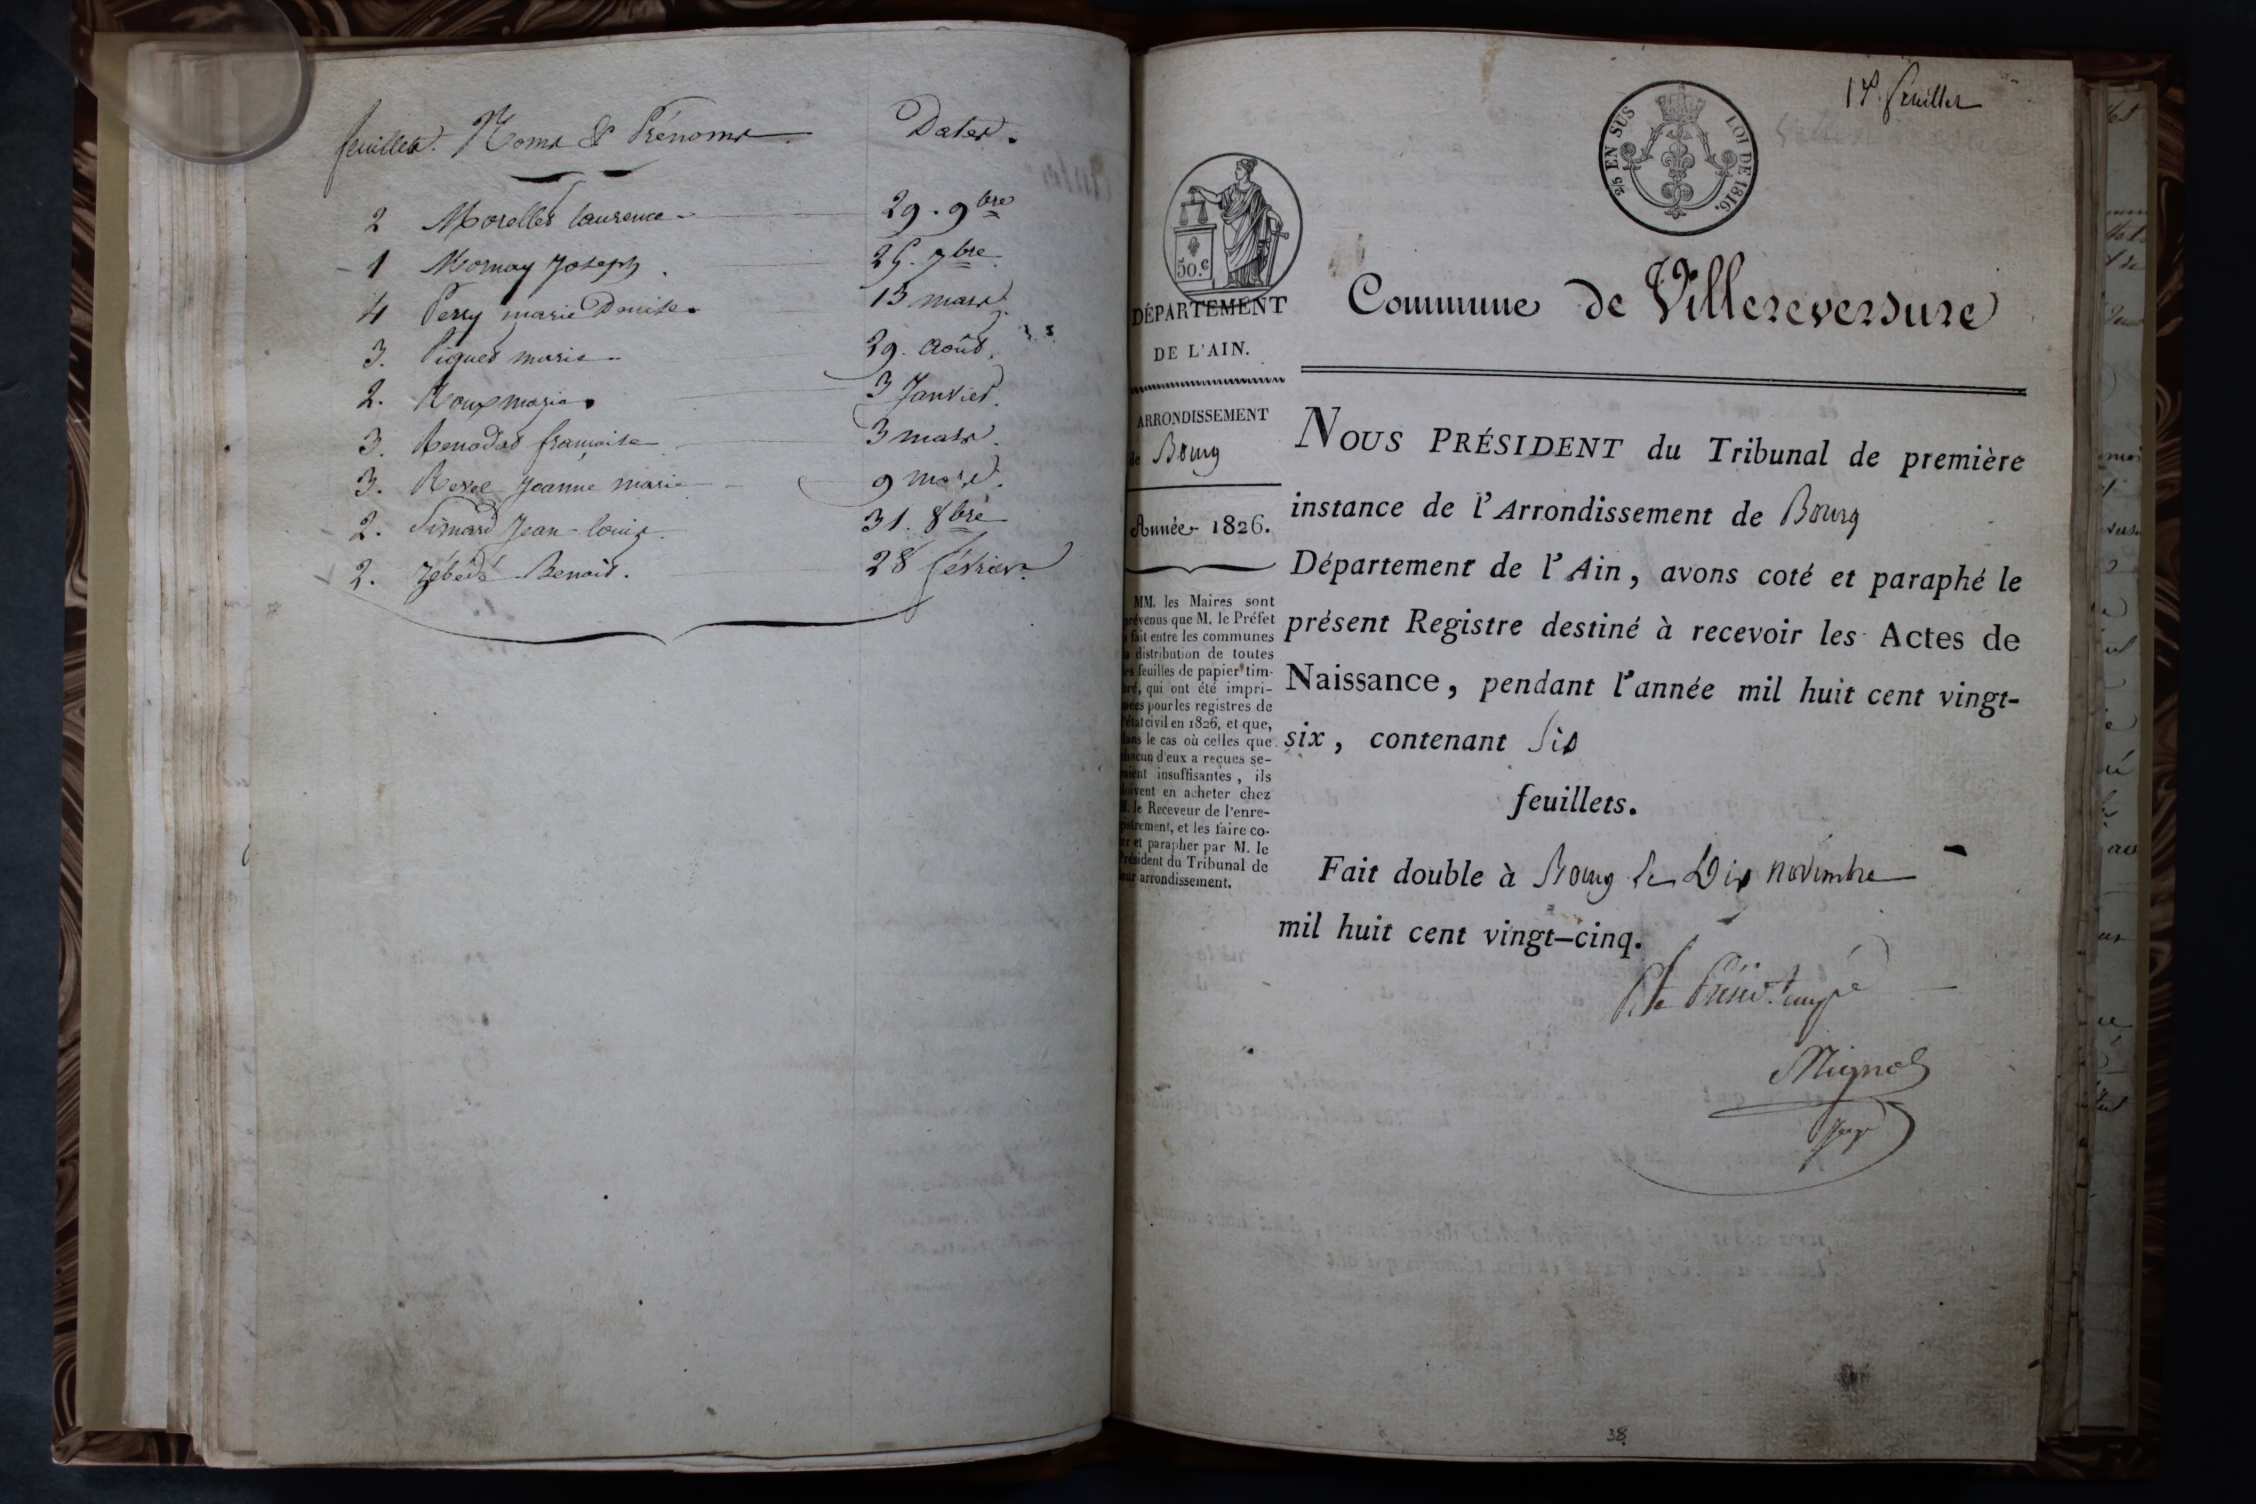 feuillets. Noms & Prénoms. Dates.
2 Morellet laurence 29. 9bre
1 Mornay Joseph. 25. 7bre
4 Perry marie Denise 13 mars.
3. Piquet marie 29. Août.
2. Roux marie 3 Janvier.
3. Renodat françoise 3 mars.
3. Revel Jeanne marie 9 mars.
2. Simard Jean-louis. 31. 8bre
2. Zébédé Benoit. 28 février.
1er feuillet
2/5 EN SUS LOI DE 1816.
50.c
DÉPARTEMENT
DE L'AIN.
Commune de Villereversure
ARRONDISSEMENT
de Bourg
Année 1826.
MM. les Maires sont
prévenus que M. le Préfet
a fait entre les communes
la distribution de toutes
les feuilles de papier tim-
bré, qui ont été impri-
mées pour les registres de
l'état civil en 1826, et que,
dans le cas où celles que
chacun d'eux a reçues se-
raient insuffisantes, ils
doivent en acheter chez
M. le Receveur de l'enre-
gistrement, et les faire co-
ter et parapher par M. le
Président du Tribunal de
leur arrondissement.
NOUS PRÉSIDENT du Tribunal de première
instance de l'Arrondissement de Bourg
Département de l'Ain, avons coté et paraphé le
présent Registre destiné à recevoir les Actes de
Naissance, pendant l'année mil huit cent vingt-
six, contenant Six
feuillets.
Fait double à Bourg le Dix novembre
mil huit cent vingt-cinq.
P. le Présid. empé
Mignot
Juge
38